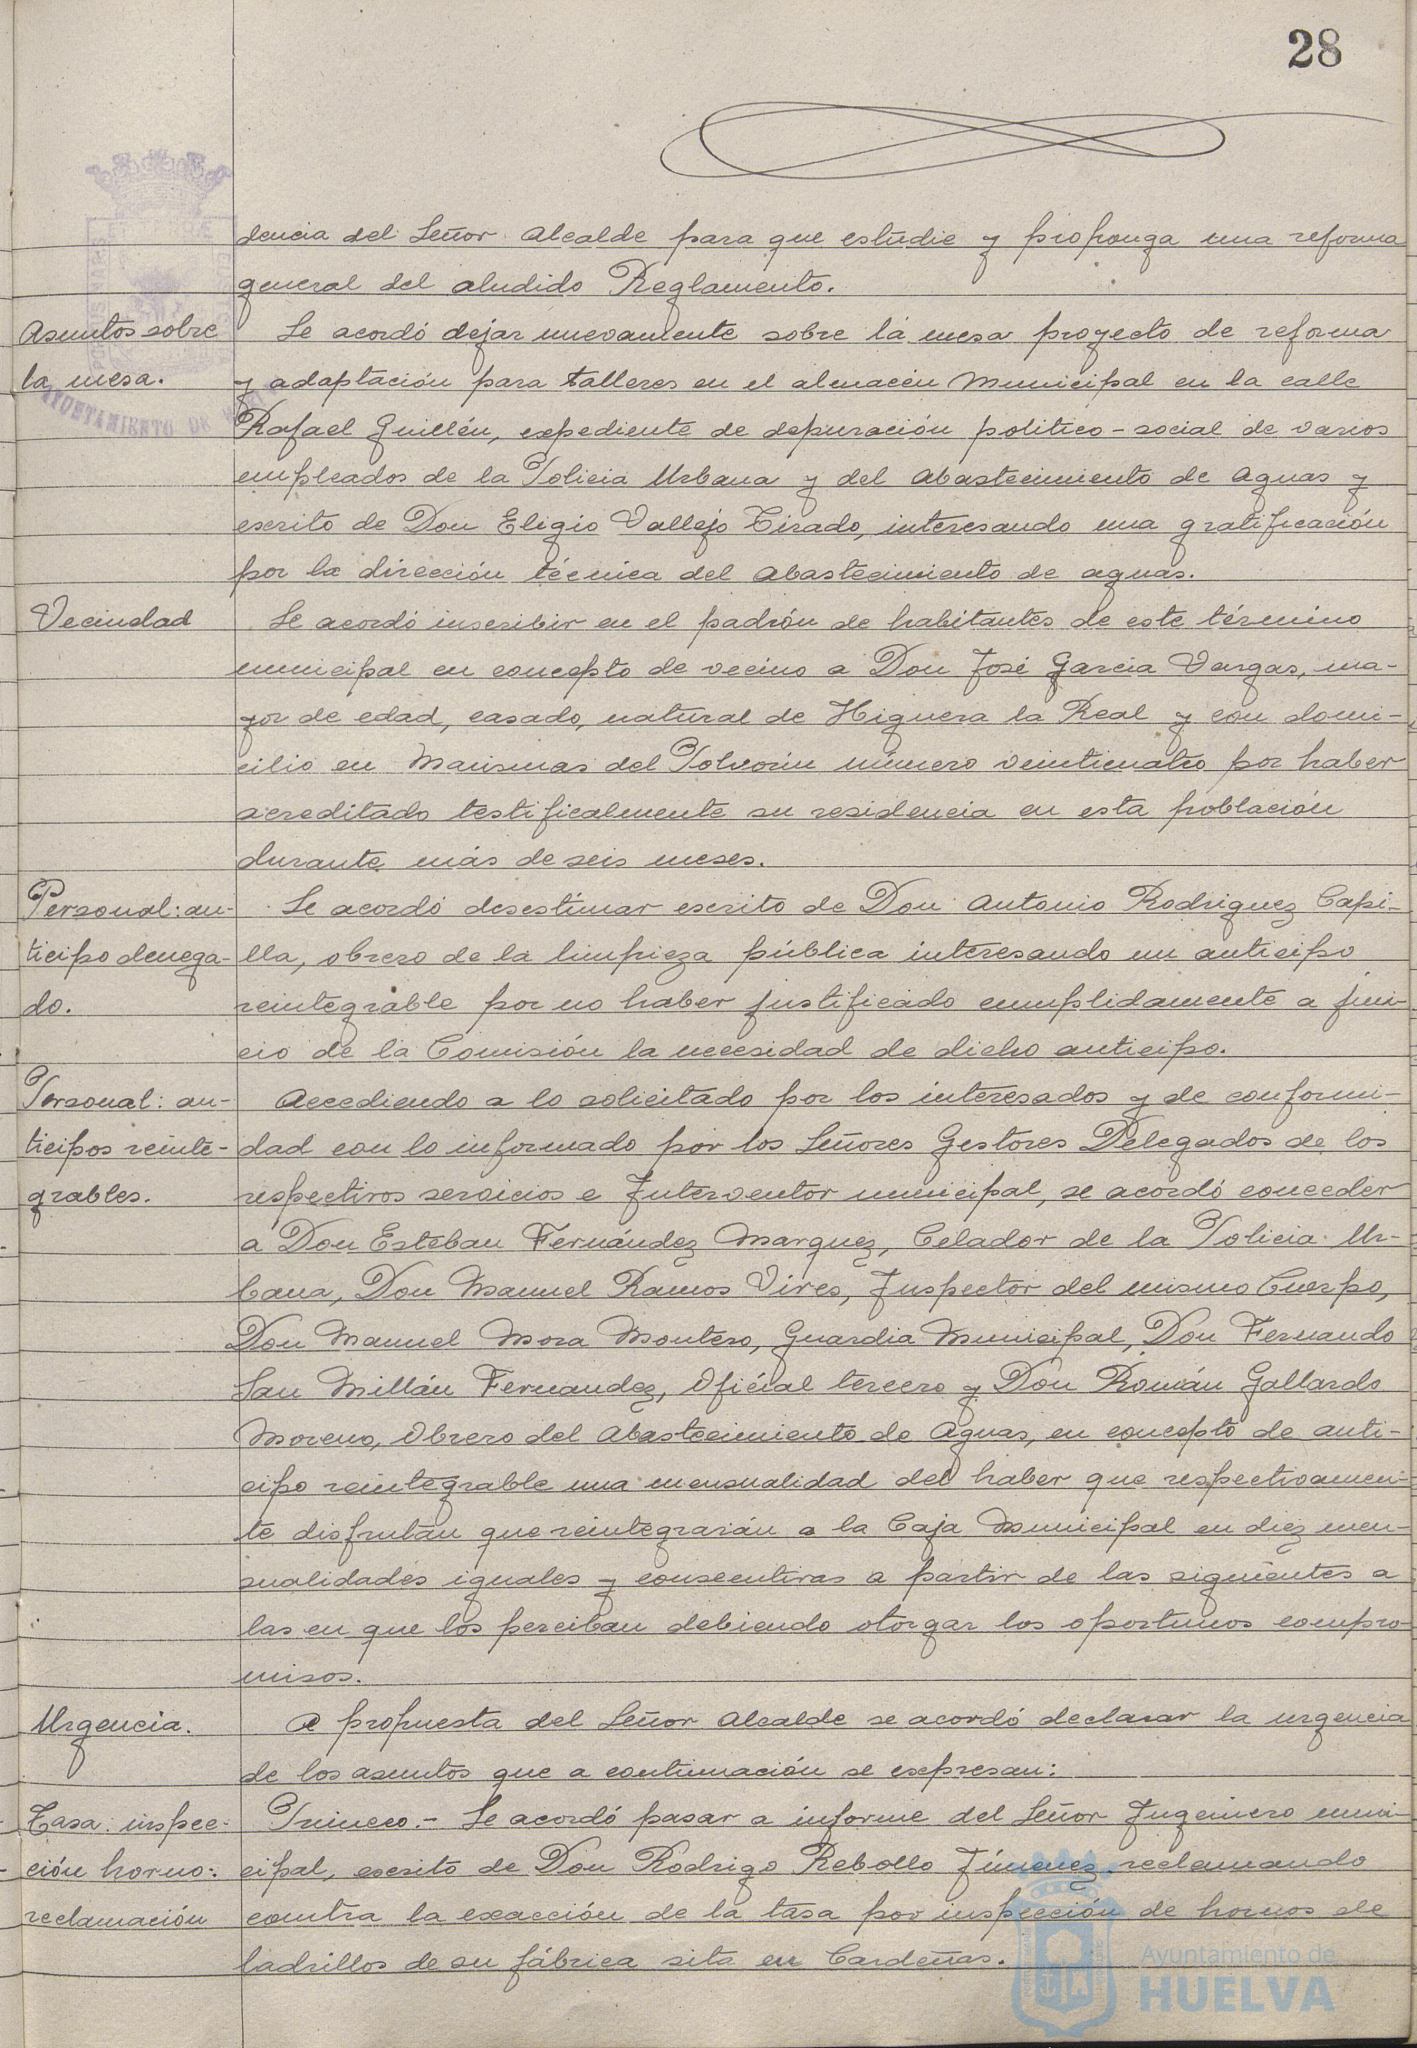 28
dencia del Señor Alcalde para que estudie y proponga una reforma
general del aludido Reglamento.
Asuntos sobre
la mesa.
Se acordó dejar nuevamente sobre la mesa proyecto de reforma
y adaptación para talleres en el almacén Municipal en la calle
Rafael Guillén, expediente de depuración politico-social de varios
empleados de la Policia Urbana y del Abastecimiento de Aguas y
escrito de Don Eligio Vallejo Tirado, interesando una gratificación
por la dirección técnica del Abastecimiento de aguas.
Vecindad
Se acordó inscribir en el padrón de habitantes de este término
municipal en concepto de vecino a Don José Garcia Vargas, ma-
yor de edad, casado, natural de Higuera la Real y con domi-
cilio en Marismas del Polvorin número veinticuatro por haber
acreditado testificalmente su residencia en esta población
durante más de seis meses.
Personal: an-
ticipo denega-
do.
Se acordó desestimar escrito de Don Antonio Rodriguez Capi-
lla, obrero de la limpieza pública interesando un anticipo
reintegrable por no haber justificado cumplidamente a jui-
cio de la Comisión la necesidad de dicho anticipo.
Personal: an-
ticipos reinte-
grables.
Accediendo a lo solicitado por los interesados y de conformi-
dad con lo informado por los Señores Gestores Delegados de los
respectivos servicios e Interventor municipal, se acordó conceder
a Don Esteban Fernández Marquez, Celador de la Policia Ur-
bana, Don Manuel Ramos Vives, Inspector del mismo Cuerpo,
Don Manuel Mora Montero, Guardia Municipal, Don Fernando
San Millán Fernandez, Oficial tercero y Don Román Gallardo
Moreno, Obrero del Abastecimiento de Aguas, en concepto de anti-
cipo reintegrable una mensualidad del haber que respectivamen-
te disfrutan que reintegrarán a la Caja Municipal en diez men-
sualidades iguales y consecutivas a partir de las siguientes a
las en que los perciban debiendo otorgar los oportunos compro-
misos.
Urgencia.
A propuesta del Señor Alcalde se acordó declarar la urgencia
de los asuntos que a continuación se expresan:
Tasa: inspec-
ción horno:
reclamación
Primero.- Se acordó pasar a informe del Señor Ingeniero muni-
cipal, escrito de Don Rodrigo Rebollo Jímenez reclamando
contra la exacción de la tasa por inspección de hornos de
ladrillos de su fábrica sita en Cardeñas.
Ayuntamiento de
HUELVA